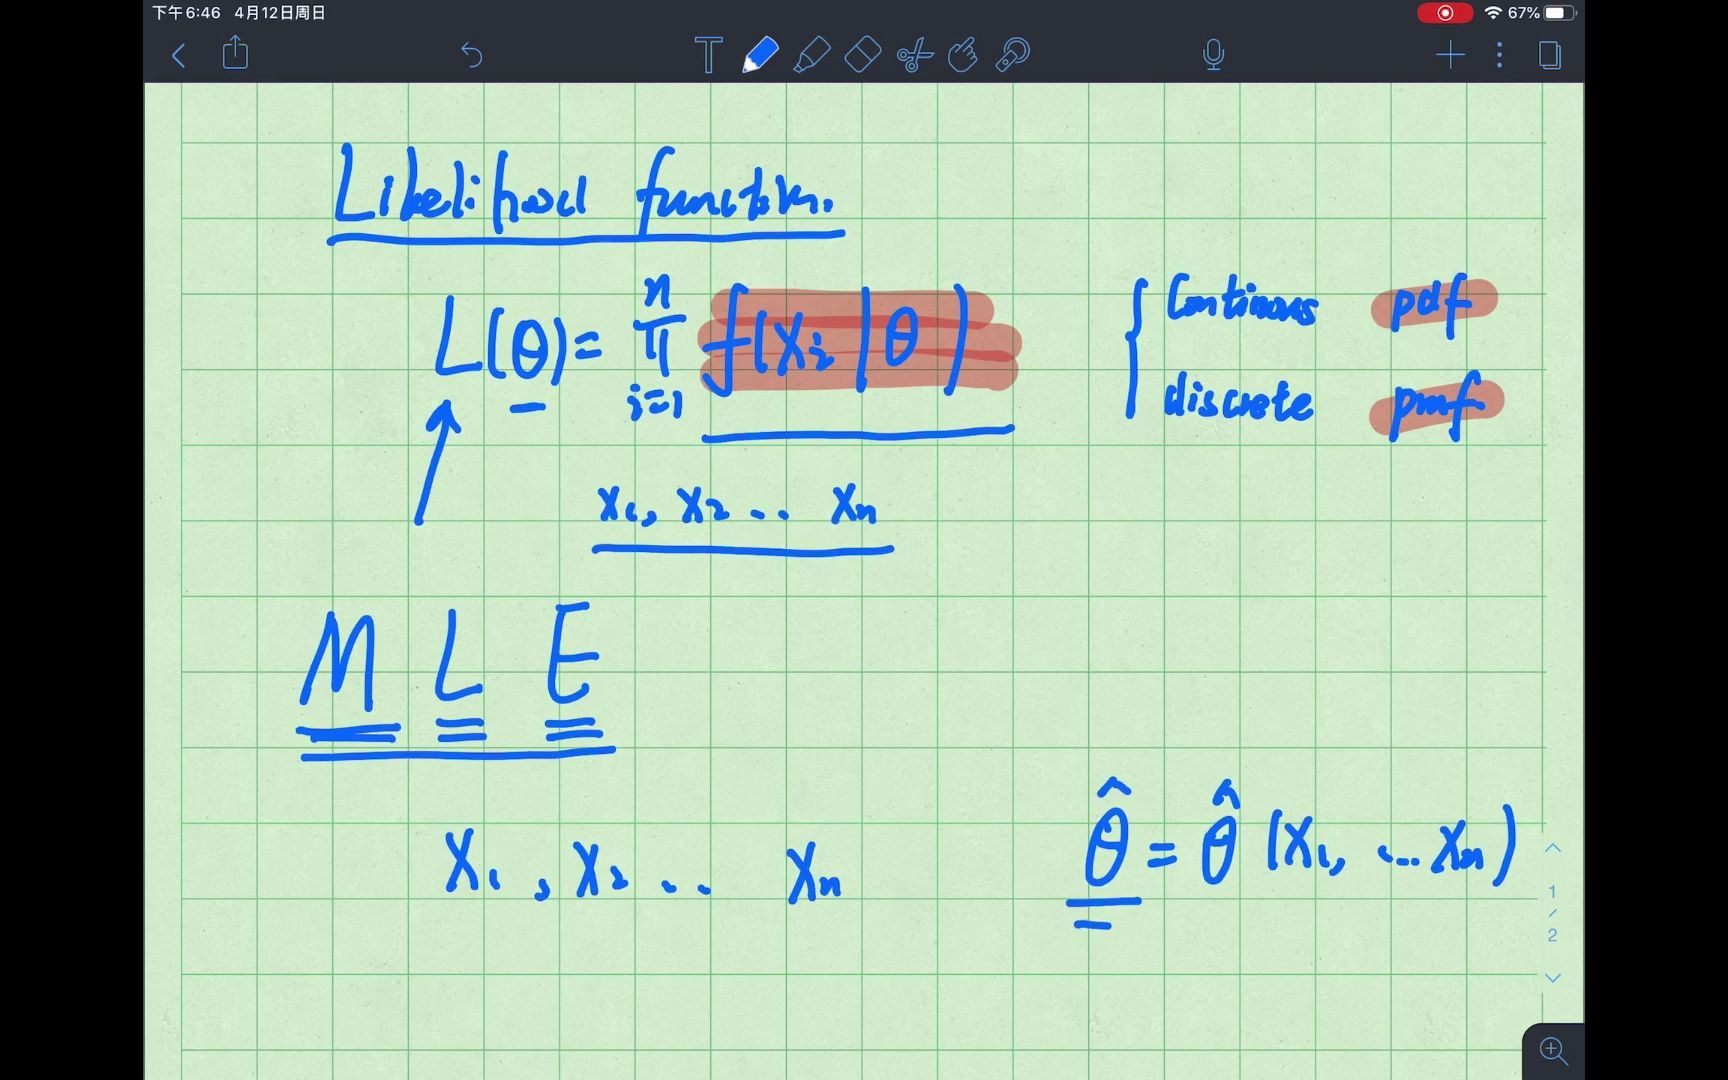 下午6:46 4月12日周日 67%
T
Likelihood function.
L(θ)= n π i=1 f(xi|θ)
{ Continous pdf
discrete pmf
x1, x2 .. xn
M L E
X1 , X2 .. Xn
θ̂ = θ̂ (X1, ... Xn)
1
/
2